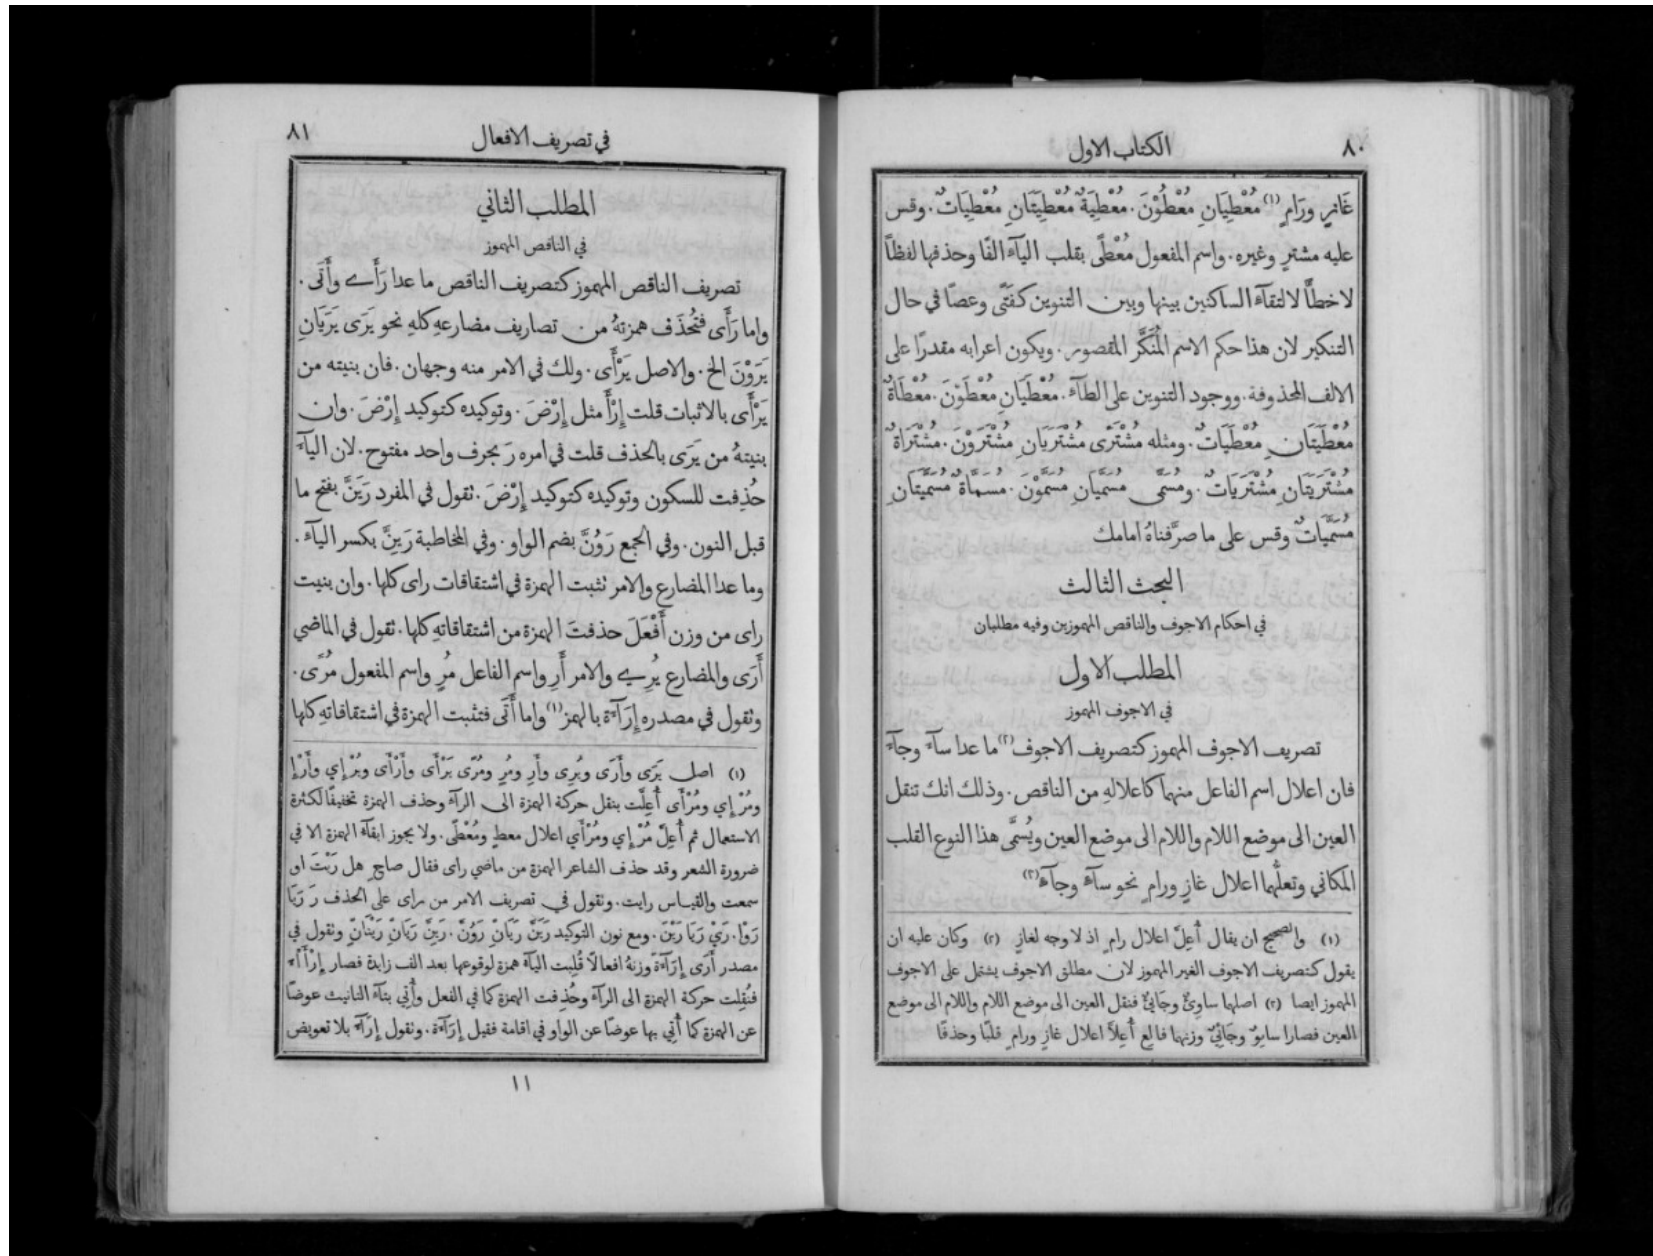 ٨٠
الكتاب الاول
غَازٍ ورَامٍ (١) مُعْطِيَانِ مُعْطُوْنَ. مُعْطِيَةٌ مُعْطِيَتَانِ مُعْطِيَاتٌ. وقس
عليه مشترٍ وغيره. واسم المفعول مُعْطًى بقلب اليآءَ الفًا وحذفها لفظًا
لا خطًّا لالتقآءَ الساكنين بينها وبين التنوين كفَتًى وعصًا في حال
التنكير لان هذا حكم الاسم المُنَكَّر المقصور. ويكون اعرابه مقدرًا على
الالف المحذوفة. ووجود التنوين على الطآءَ. مُعْطَيَانِ مُعْطَوْنَ. مُعْطَاةٌ
مُعْطَيَتَانِ مُعْطَيَاتٌ. ومثله مُشْتَرًى مُشْتَرَيَانِ مُشْتَرَوْنَ. مُشْتَرَاةٌ
مُشْتَرَيَتَانِ مُشْتَرَيَاتٌ. ومُسَمًّى مُسَمَّيَانِ مُسَمَّوْنَ. مُسَمَّاةٌ مُسَمَّيَتَانِ
مُسَمَّيَاتٌ وقس على ما صرَّفناهُ امامك
البحث الثالث
في احكام الاجوف والناقص المهموزين وفيه مطلبان
المطلب الاول
في الاجوف المهموز
تصريف الاجوف المهموز كتصريف الاجوف (٢) ما عدا سآءَ وجآءَ
فان اعلال اسم الفاعل منهما كاعلالهِ من الناقص. وذلك انك تنقل
العين الى موضع اللام واللام الى موضع العين ويُسَمَّى هذا النوع القلب
المكاني وتعلُّهما اعلال غازٍ ورامٍ نحو سآءٍ وجآءٍ (٣)
(١) والصحيح ان يقال أُعِلَّ اعلال رامٍ اذ لا وجه لغازٍ (٢) وكان عليه ان
يقول كتصريف الاجوف الغير المهموز لان مطلق الاجوف يشتمل على الاجوف
المهموز ايضا (٣) اصلهما ساوِئٌ وجَايِئٌ فنقل العين الى موضع اللام واللام الى موضع
العين فصارا سايِوٌ وجَائِيٌ وزنهما فالع أُعِلاَّ اعلال غازٍ ورامٍ قلبًا وحذفًا
في تصريف الافعال
٨١
المطلب الثاني
في الناقص المهموز
تصريف الناقص المهموز كتصريف الناقص ما عدا رَأَى وأَتَى.
واما رَأَى فتُحذَف همزتهُ من تصاريف مضارعهِ كلهِ نحو يَرَى يَرَيَانِ
يَرَوْنَ الخ. والاصل يَرْأَى. ولك في الامر منه وجهان. فان بنيته من
يَرْأَى بالاثبات قلت إِرْأَ مثل إِرْضَ. وتوكيده كتوكيد إِرْضَ. وان
بنيتهُ من يَرَى بالحذف قلت في امره رَ بحرف واحد مفتوح. لان اليآءَ
حُذِفت للسكون وتوكيده كتوكيد إِرْضَ. تقول في المفرد رَيَنَّ بفتح ما
قبل النون. وفي الجمع رَوُنَّ بضم الواو. وفي المخاطبة رَيِنَّ بكسر اليآءَ.
وما عدا المضارع والامر تثبت الهمزة في اشتقاقات راى كلها. وان بنيت
راى من وزن أَفْعَلَ حذفتَ الهمزة من اشتقاقاتهِ كلها. تقول في الماضي
أَرَى والمضارع يُرِي والامر أَرِ واسم الفاعل مُرٍ واسم المفعول مُرًى.
وتقول في مصدره إِرَآءَة بالهمز (١) واما أَتَى فتثبت الهمزة في اشتقاقاتهِ كلها
(١) اصل يَرَى وأَرَى ويُرِى وأَرِ ومُرٍ ومُرًى يَرْأَى وأَرْأَى ويُرْإِي وأَرْإِ
ومُرْإِي ومُرْأَى أُعِلَّت بنقل حركة الهمزة الى الرآءَ وحذف الهمزة تخفيفًا لكثرة
الاستعمال ثم أُعِلّ مُرْإِي ومُرْأَي اعلال معطٍ ومُعْطًى. ولا يجوز ابقآءَ الهمزة الا في
ضرورة الشعر وقد حذف الشاعر الهمزة من ماضي راى فقال صاحِ هل رَيْتَ او
سمعت والقياس رايت. وتقول في تصريف الامر من راى على الحذف رَ رَيَا
رَوْا. رَيْ رَيَا رَيْنَ. ومع نون التوكيد رَيَنَّ رَيَانِّ رَوُنَّ. رَيِنَّ رَيَانِّ رَيْنَانِّ وتقول في
مصدر أَرَى إِرَآءَةً وزنهُ افعالًا قُلِبت اليآءَ همزة لوقوعها بعد الف زايدة فصار إِرْأَاء
فنُقِلت حركة الهمزة الى الرآءَ وحُذِفت الهمزة كما في الفعل وأُتِي بتآءَ التانيث عوضًا
عن الهمزة كما أُتِي بها عوضًا عن الواو في اقامة فقيل إِرَآءَة. وتقول إِرَآءَ بلا تعويض
١١